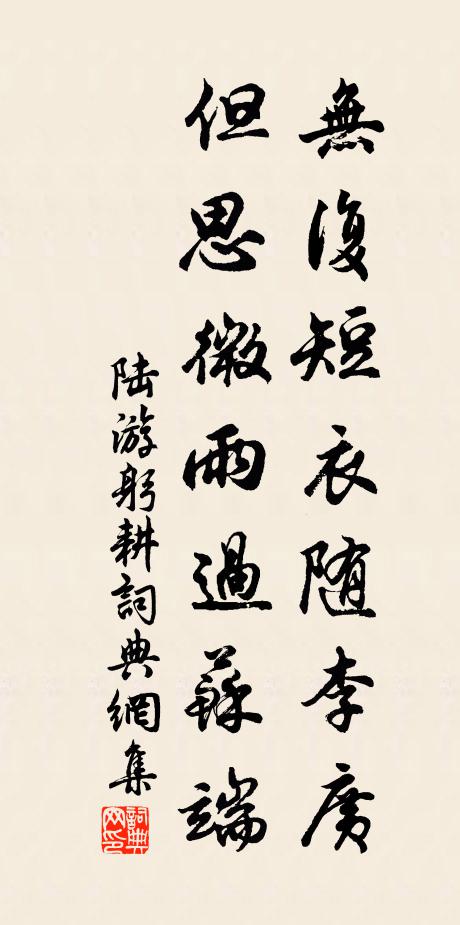 無復短衣随李廣
但思微雨過蘇端
陆游躬耕詞典網集
詞典網印